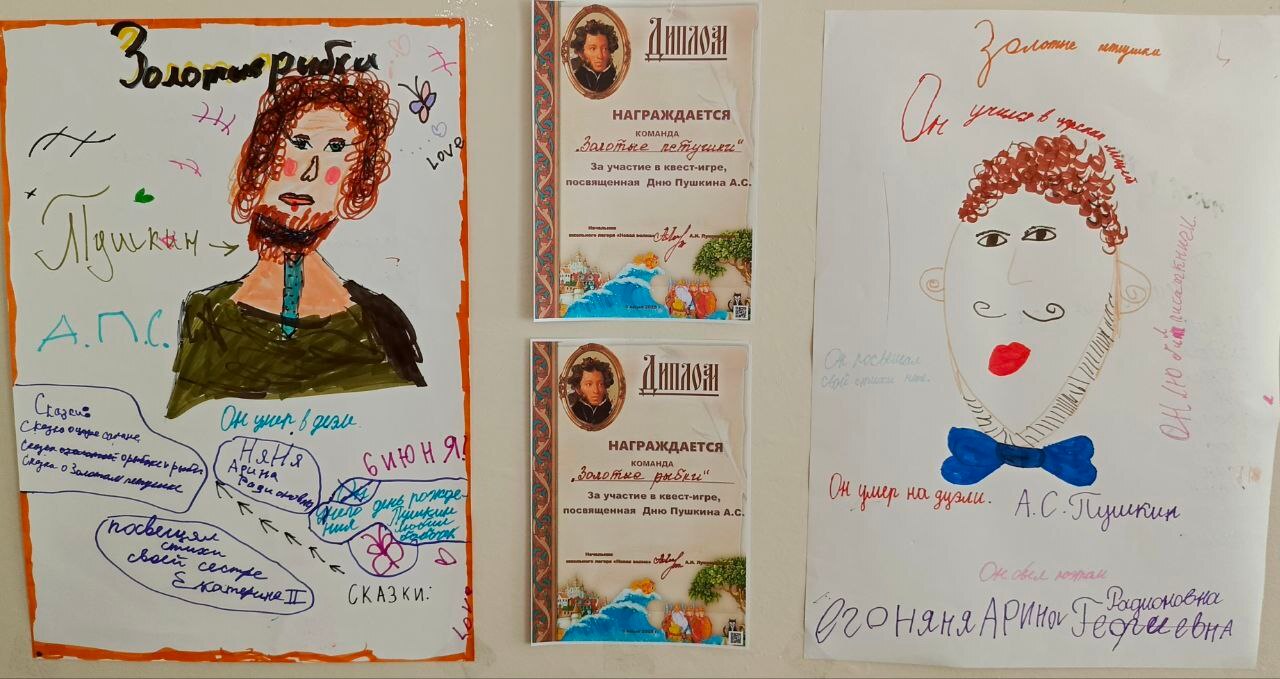 Золотые рыбки
Love
Пушкин
А.П.С.
Сказки:
Сказка о царе салане
Сказка о Золотом петушке
Он умер в дуэли.
НЯНЯ
Арина
Радионовна
6 ИЮНЯ!
день рожде-
ния Пушкин
любил
посвещял
стихи
своей сестре
Екатерине II
СКАЗКИ:
Love
Диплом
НАГРАЖДАЕТСЯ
КОМАНДА
„Золотые петушки"
За участие в квест-игре,
посвященная Дню Пушкина А.С.
Начальник
школьного лагеря «Новая волна»
Диплом
НАГРАЖДАЕТСЯ
КОМАНДА
„Золотые рыбки"
За участие в квест-игре,
посвященная Дню Пушкина А.С.
Начальник
школьного лагеря «Новая волна»
Золотые петушки
Он учился в царском лицей
Он посвещал
свой стихи няне.
Он умер на дуэли.
А.С. Пушкин
Он был поэтом
Его НЯНЯ АРИНА Радионовна